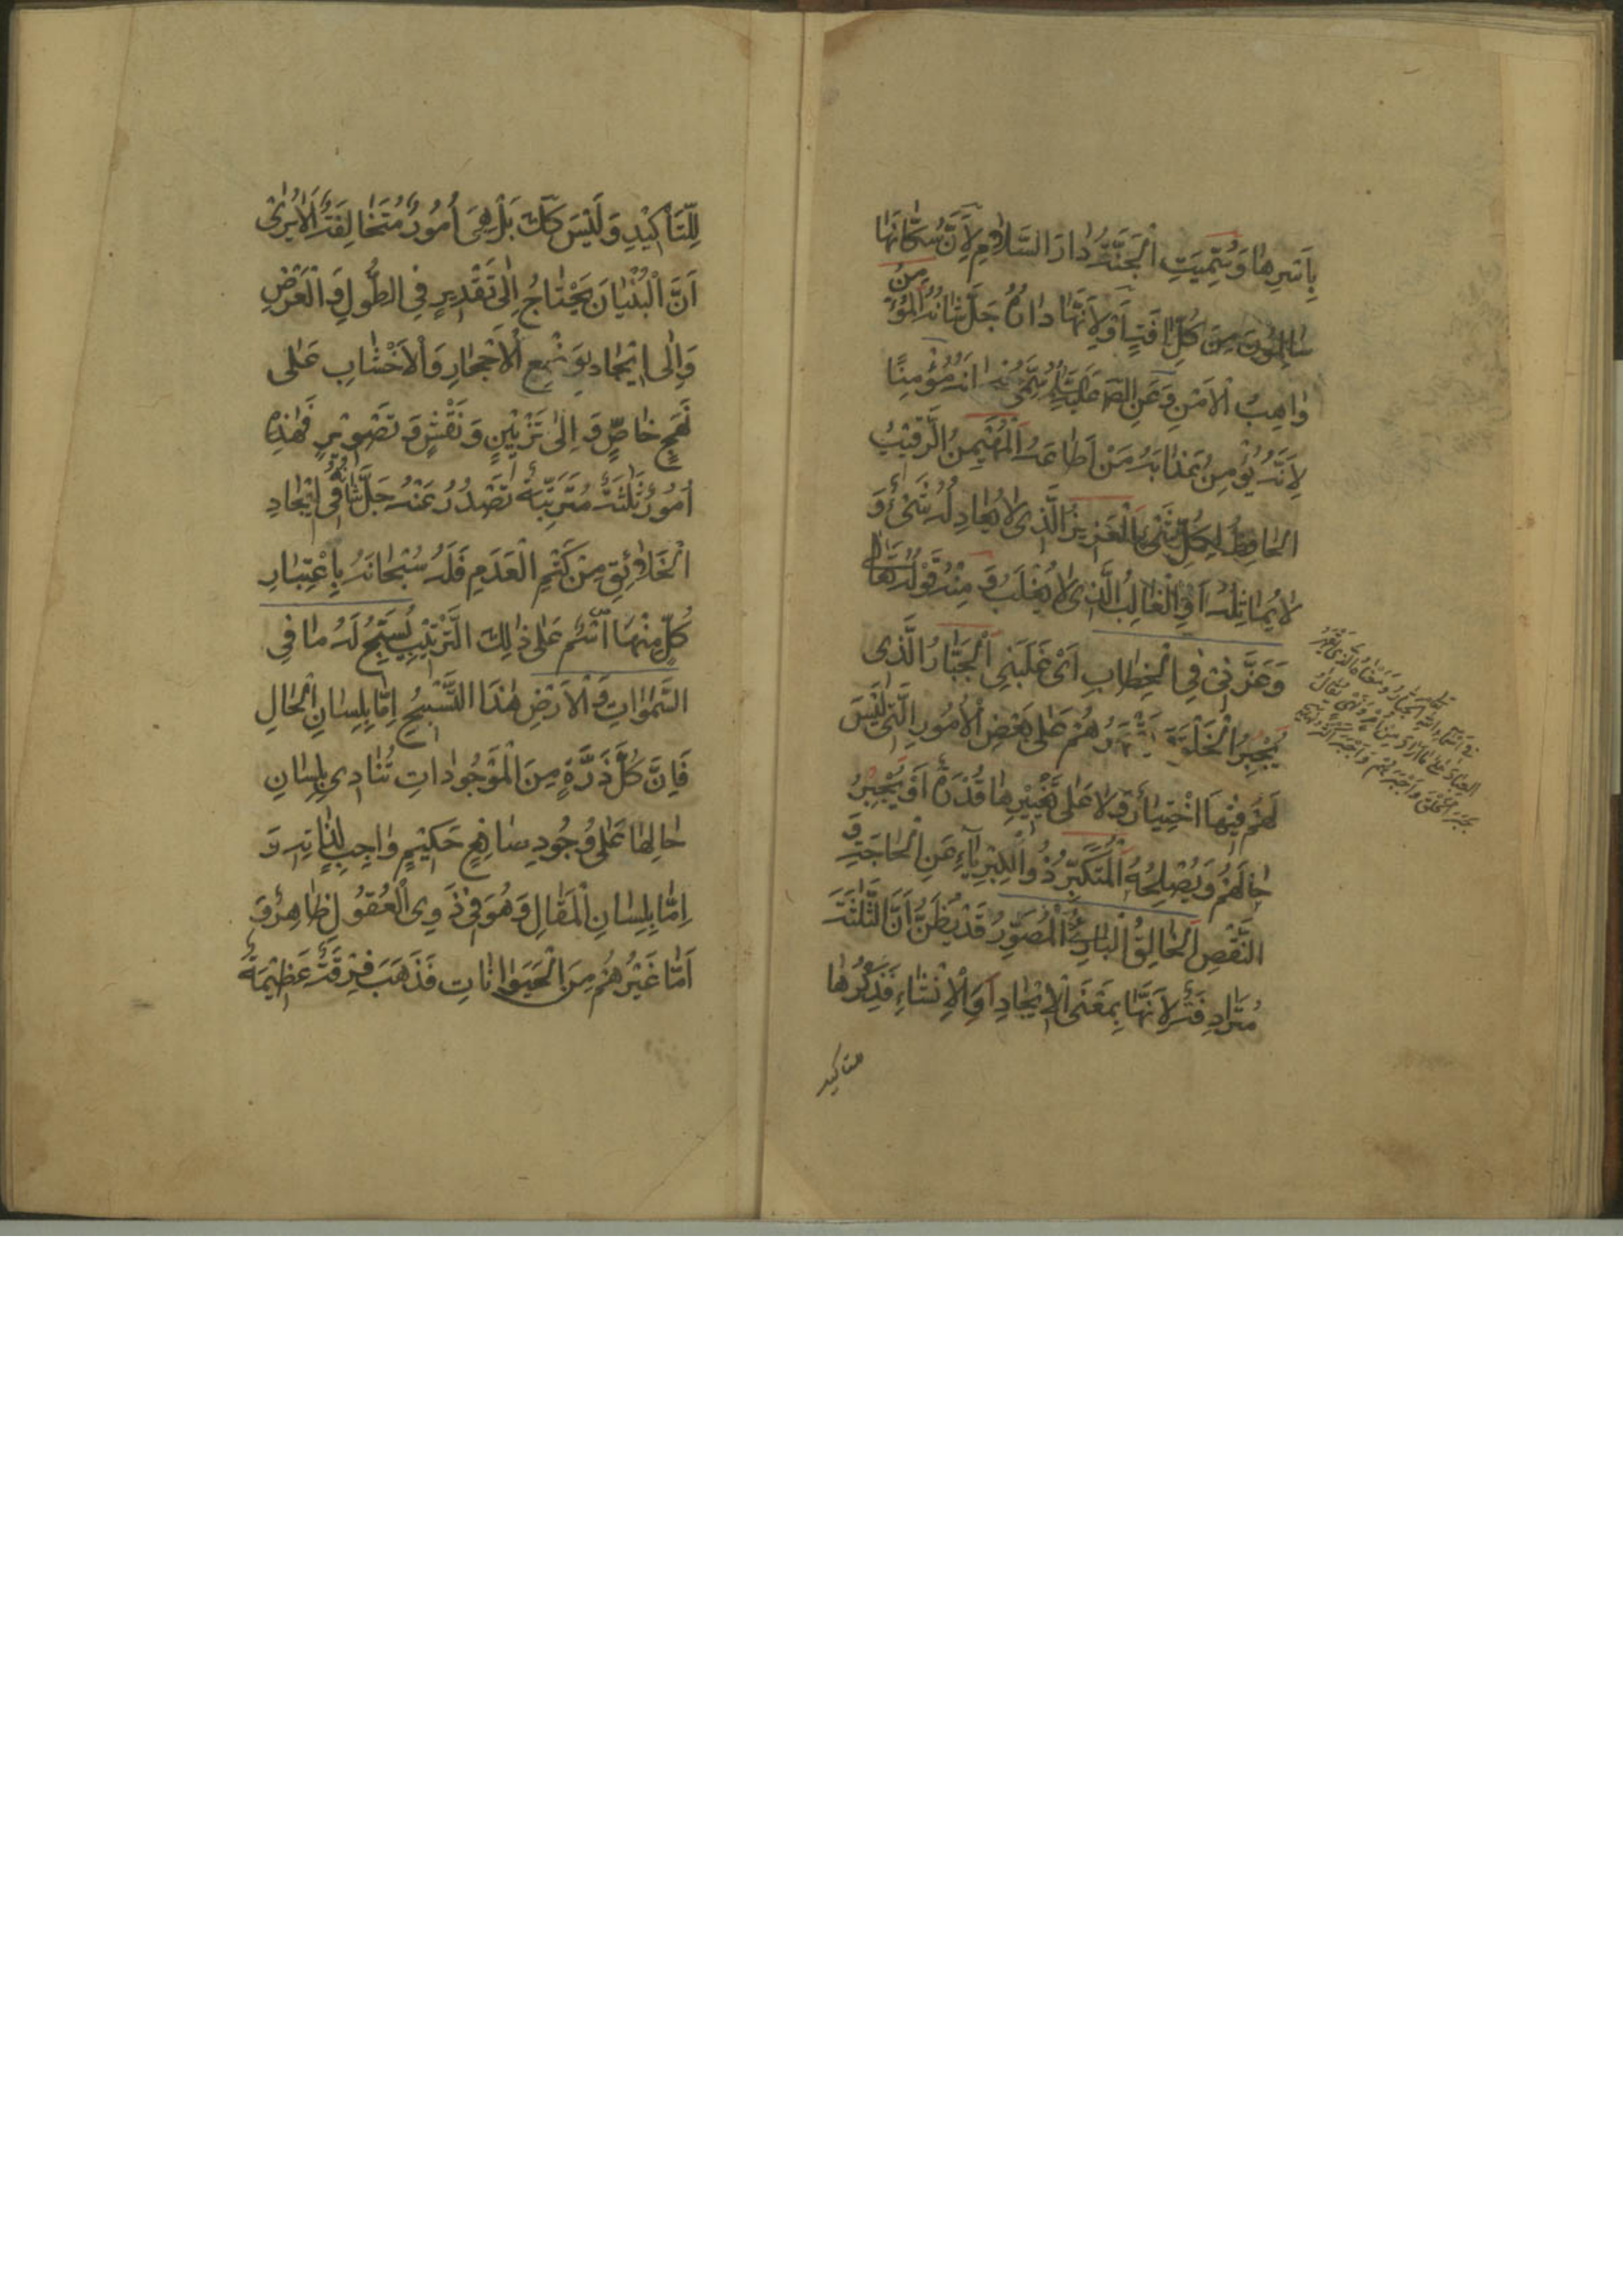 بِاَسْرِهٰا وَسُمِّيَتِ الْجَنَّةُ دٰارَ السَّلاٰمِ لِاَنَّ سُكّٰانَهٰا
سٰالِمُونَ مِنْ كُلِّ اٰفَةٍ اَوْ لِاَنَّهٰا دٰارُهُ جَلَّ شَانُهُ الْمُؤْمِنُ
وٰاهِبُ الْاَمْنِ وَعَنِ الصّٰ عَلَيْهِ سُمِّيَ سُبْحٰانَهُ مُؤْمِنًا
لِاَنَّهُ يُؤْمِنُ عَذٰابَهُ مَنْ اَطٰاعَهُ الْمُهَيْمِنُ الرَّقيْبُ
الحٰافِظُ لِكُلِّ شَىْءٍ الْعَزيزُ الَّذى لاٰ يُعٰادِلُهُ شَىْءٌ وَ
لاٰ يُمٰاثِلُهُ اَوِ الْغٰالِبُ الَّذى لاٰ يُغْلَبُ وَ مِنْهُ قَوْلُهُ تَعٰالى
وَعَزَّنىْ فِي الْخِطٰابِ اَىْ غَلَبَنِى الْجَبّٰارُ الَّذى
يُجْبِرُ الْخَلْقَ وَيَقْهَرُهُمْ عَلى بَعْضِ الْاُمُورِ الَّتى لَيْسَ
لَهُمْ فيْهَا اخْتِيٰارٌ وَلاٰ عَلى تَغْييْرِهٰا قُدْرَةٌ اَوْ يَجْبِرُ
حٰالَهُمْ وَيُصْلِحُهُ الْمُتَكَبِّرُ ذُو الْكِبْرِيٰاءِ عَنِ الْحٰاجَةِ وَ
النَّقْصِ الْخٰالِقُ الْبٰارِئُ الْمُصَوِّرُ قَدْ يُظَنُّ اَنَّ الثَّلٰثَةَ
مُتَرٰادِفَةٌ لِاَنَّهٰا بِمَعْنَى الْايْجٰادِ وَالْاِنْشٰاءِ فَذِكْرُهٰا
للتاكيد
لِلتَّاْكيْدِ وَلَيْسَ كَكَ بَلْ هِىَ اُمُورٌ مُتَخٰالِفَةٌ اَلاٰ يُرىٰ
اَنَّ الْبُنْيٰانَ يَحْتٰاجُ اِلٰى تَقْديرٍ فِى الطُّولِ وَ الْعَرْضِ
وَاِلٰى ايْجٰادٍ بِوَضْعِ الْاَحْجٰارِ وَالْاَخْشٰابِ عَلٰى
نَهْجٍ خٰاصٍّ وَ اِلىٰ تَزْييْنٍ وَ نَقْشٍ وَ تَصْويْرٍ فَهٰذِهِ
اُمُورٌ ثَلٰثَةٌ مُتَرَتِّبَةٌ تَصْدُرُ عَنْهُ جَلَّ شَانُهُ فى ايْجٰادِ
الْخَلاٰئِقِ مِنْ كَتْمِ الْعَدَمِ فَلَهُ سُبْحٰانَهُ بِاعْتِبٰارِ
كُلٍّ مِنْهَا اسْمٌ عَلٰى ذٰلِكَ التَّرْتيْبِ يُسَبِّحُ لَهُ مٰا فِى
السَّمٰوٰاتِ وَ الْاَرْضِ هٰذَا التَّسْبيْحُ اِمّٰا بِلِسٰانِ الْحٰالِ
فَاِنَّ كُلَّ ذَرَّةٍ مِنَ الْمَوْجُودٰاتِ تُنٰادى بِلِسٰانِ
حٰالِهٰا عَلٰى وُجُودِ صٰانِعٍ حَكيْمٍ وٰاجِبٍ لِذٰاتِهِ وَ
اِمّٰا بِلِسٰانِ الْمَقٰالِ وَ هُوَ فى ذَوِى الْعُقُولِ ظٰاهِرٌ وَ
اَمّٰا غَيْرُهُمْ مِنَ الْحَيَوٰانٰاتِ فَذَهَبَ فِرْقَةٌ عَظيْمَةٌ